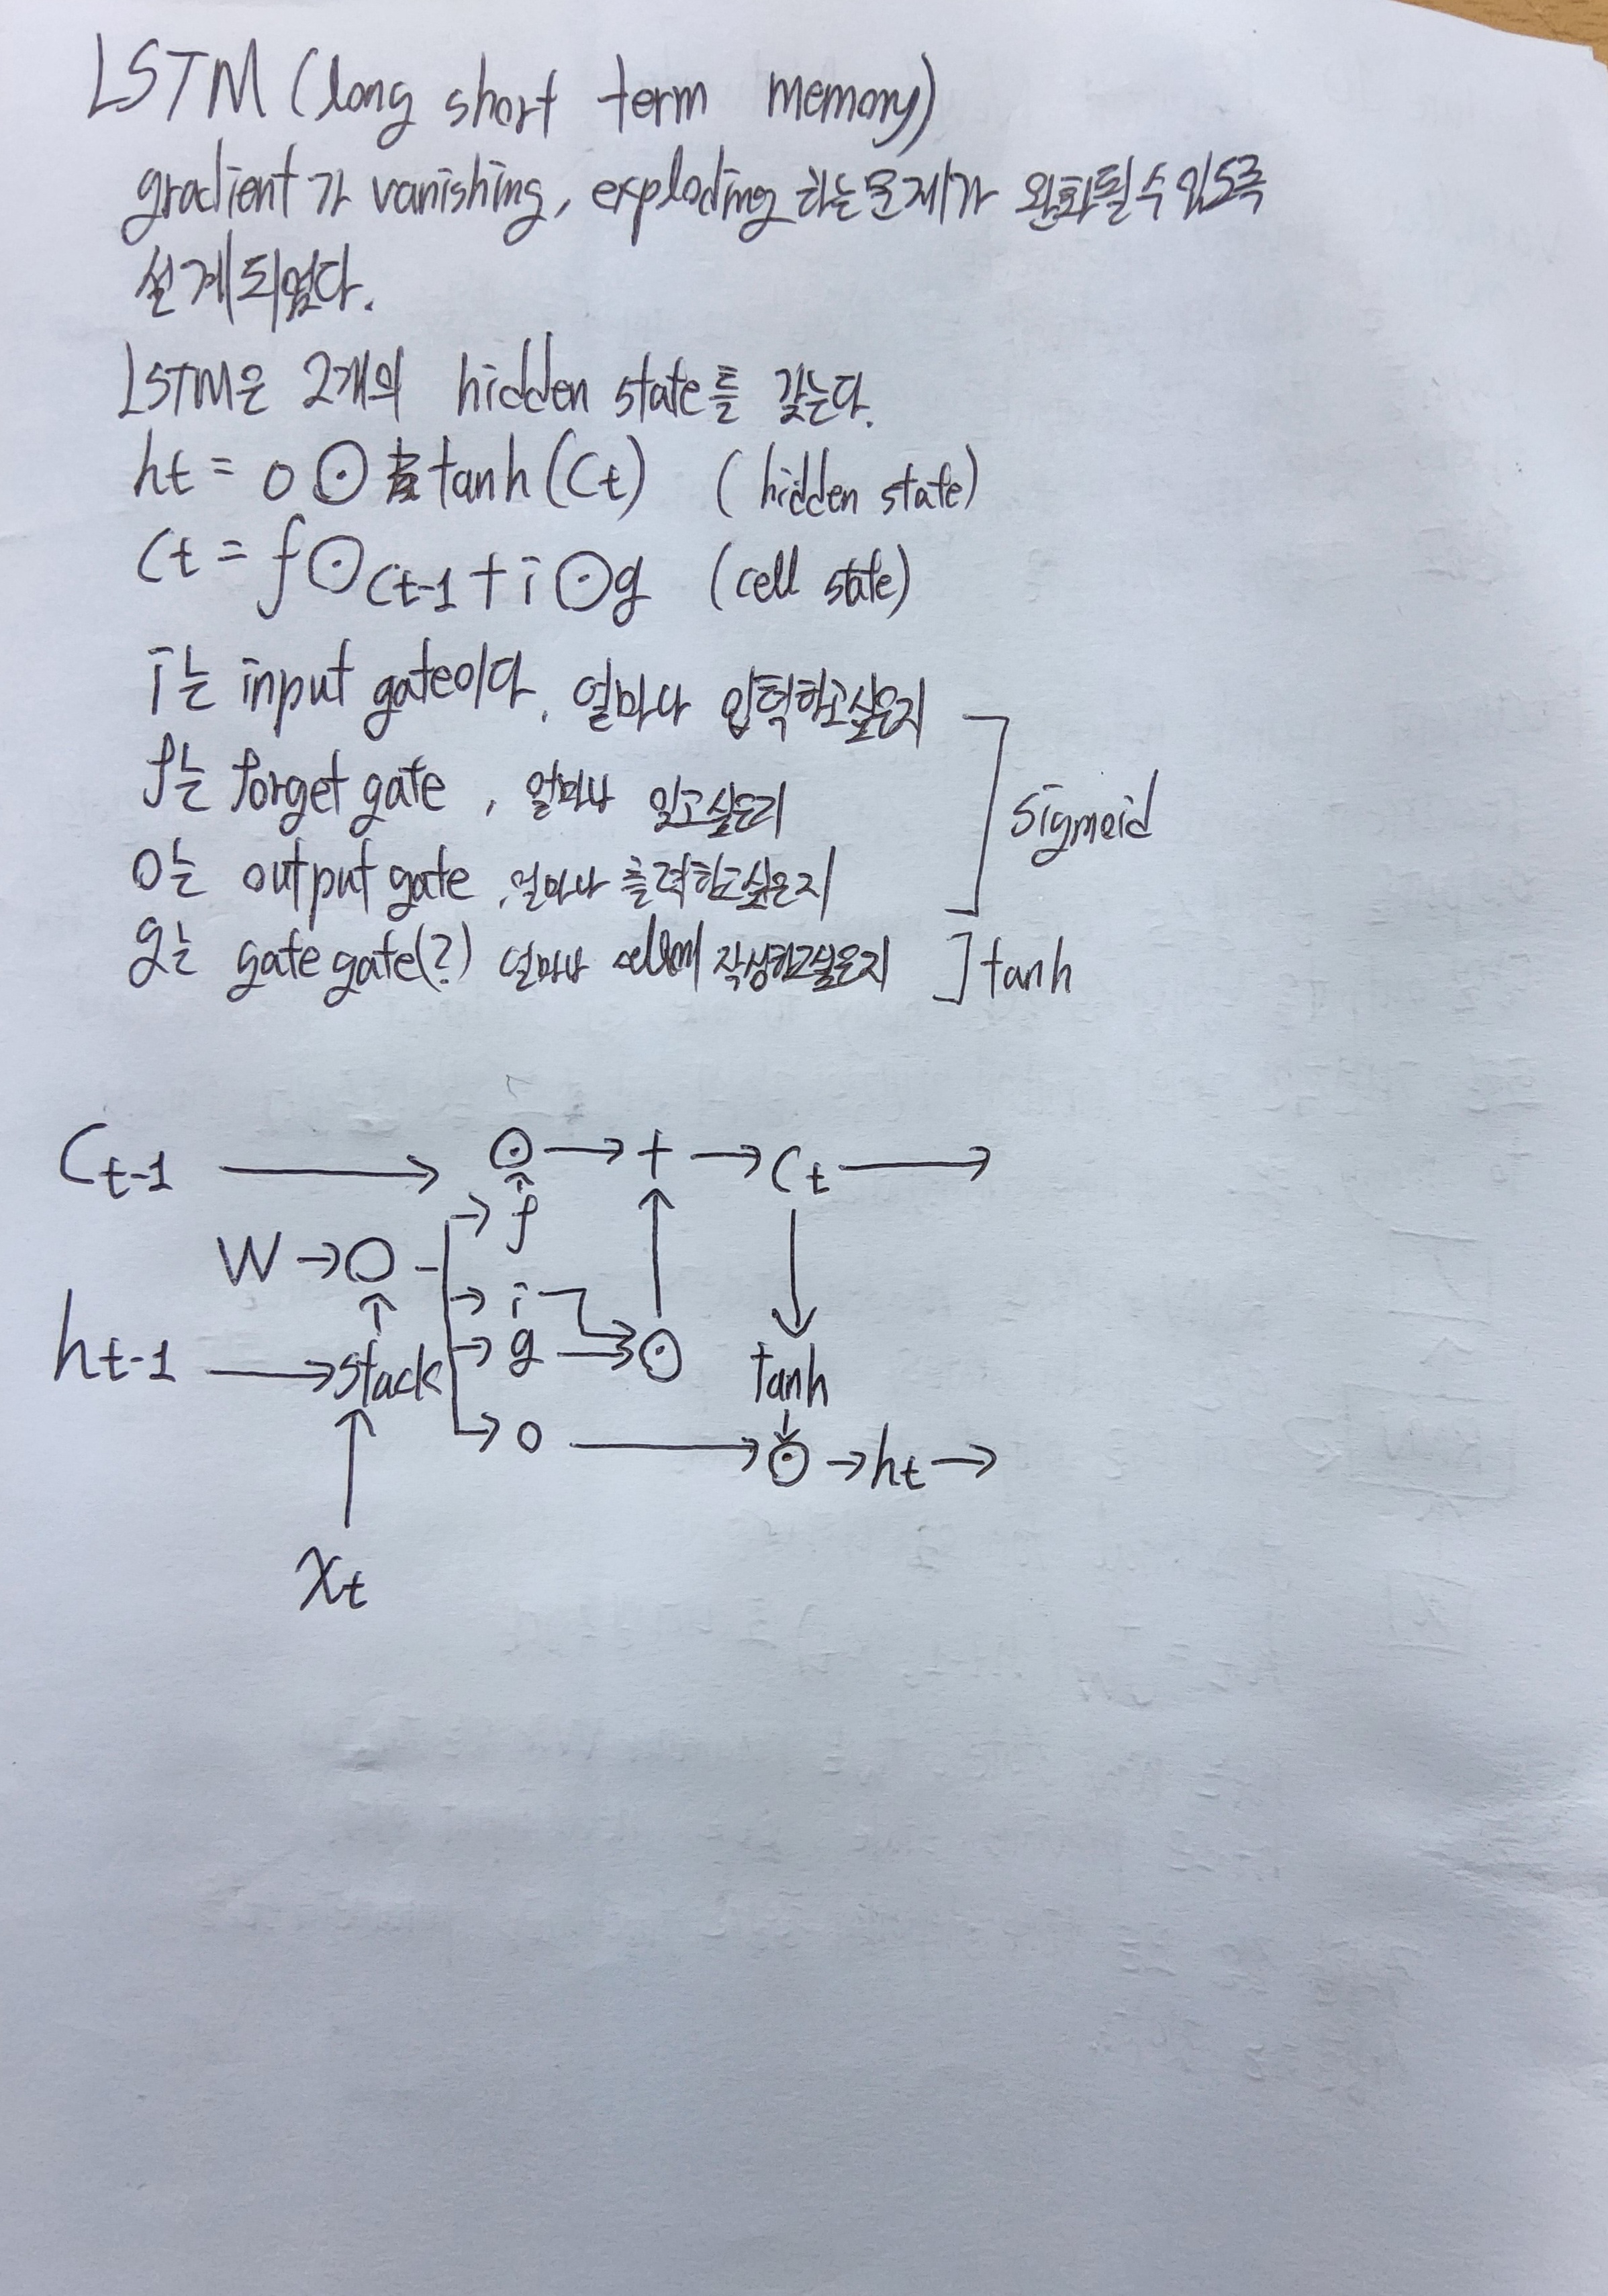 LSTM (long short term memory)
gradient가 vanishing, exploding 하는 문제가 완화될 수 있도록
설계되었다.
LSTM은 2개의 hidden state를 갖는다.
ht = o ⊙ tanh(Ct) (hidden state)
Ct = f ⊙ Ct-1 + i ⊙ g (cell state)
i는 input gate이다. 얼마나 입력하고싶은지
f는 forget gate, 얼마나 잊고싶은지
o는 output gate, 얼마나 출력하고싶은지
sigmoid
g는 gate gate(?) 얼마나 cell에 작성하고싶은지 ] tanh
Ct-1 → ⊙ → + → Ct →
→ f
W → ○
→ i
ht-1 → stack → g → ⊙ tanh
→ o → ⊙ → ht →
Xt